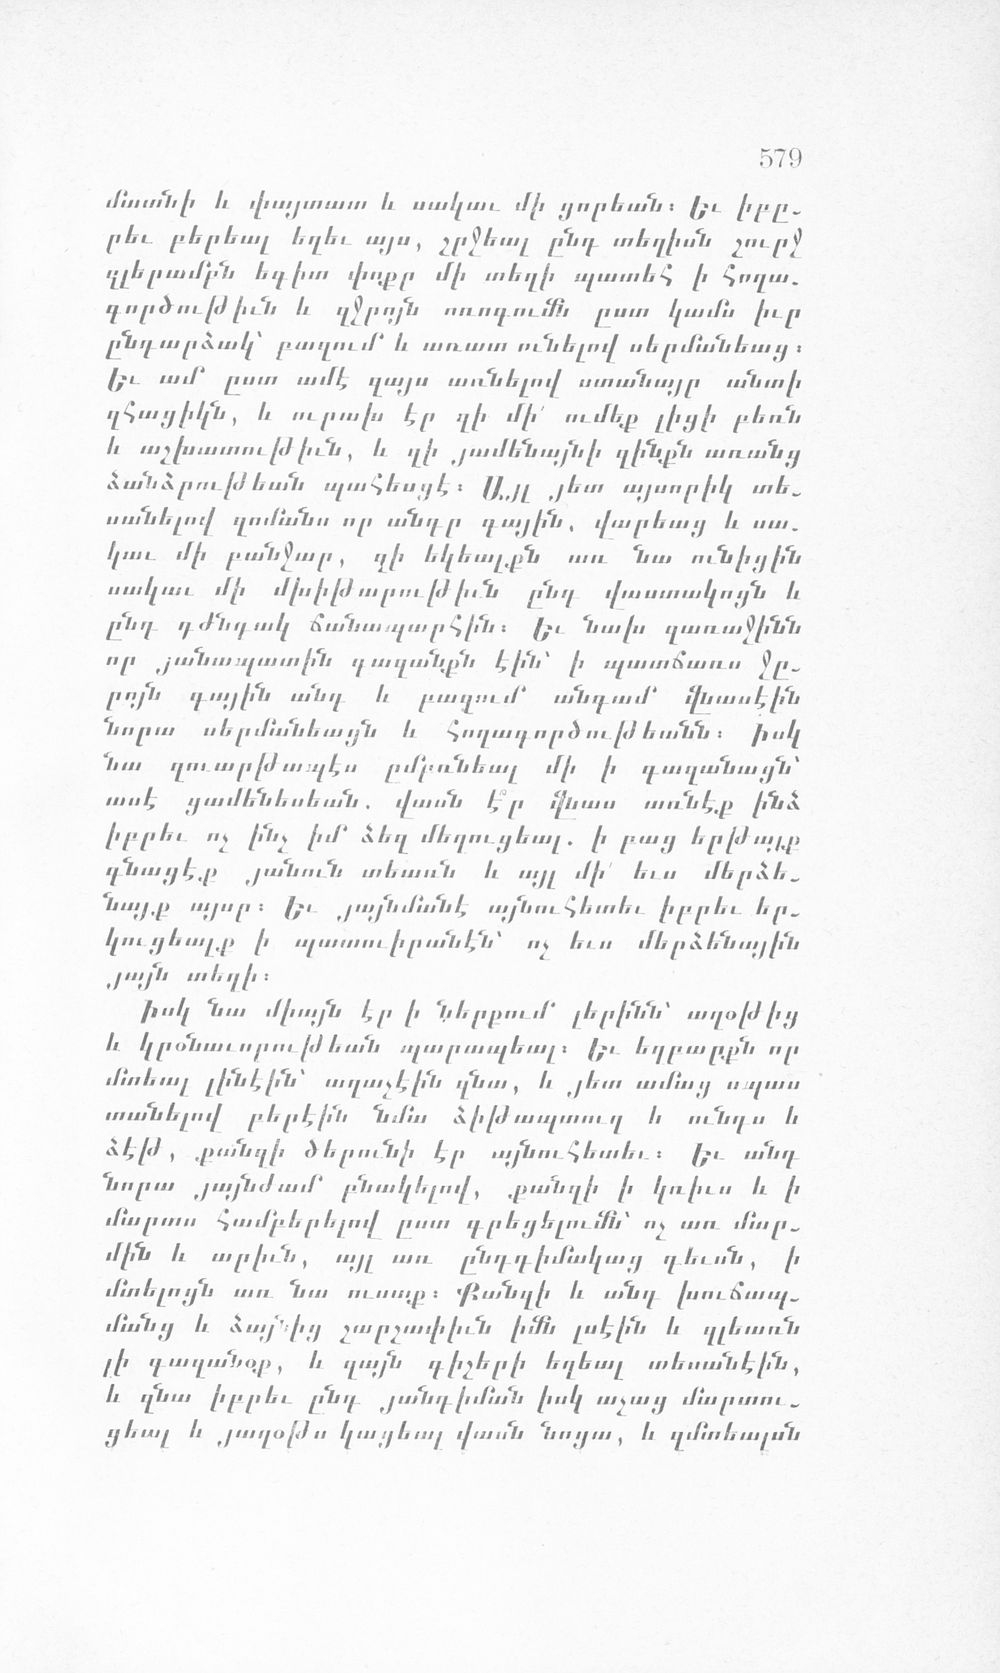 579
մատնի և փայտատ և սակաւ մի ցորեան։ Եւ իբը֊
րեւ բերեալ եղեւ այս, շրջեալ ընդ տեղիսն շուրջ
զլերամբն եգիտ փոքր մի տեղի պատեհ ի հողա֊
գործութիւն և զջրոյն ոռոգումն ըստ կամս իւր
ընդարձակ՝ բաղում և առատ ունելով սերմանեաց։
Եւ ամ ըստ ամէ զայս առնելով ստանայր անտի
զհացիկն, և ուրախ էր զի մի՛ ումեք լիցի բեռն
և աշխատութիւն, և զի յամենայնի զինքն առանց
ձանձրութեան պահեսցէ։ Այլ յետ այսորիկ տե֊
սանելով զոմանս որ անդր գային, վարեաց և սա֊
կաւ մի բանջար, զի եկեալքն առ նա ունիցին
սակաւ մի մխիթարութիւն ընդ վաստակոցն և
ընդ դժնդակ ճանապարհին։ Եւ նախ զառաջինն
որ յանապատին գազանքն էին՝ ի պատճառս ջը֊
րոյն գային անդ և բազում անգամ վնասէին
նորա սերմանեացն և հողագործութեանն։ Իսկ
նա զուարթապէս ըմբռնեալ մի ի գազանացն՝
ասէ ցամենեսեան. վասն է՞ր վնաս առնէք ինձ
իբրեւ ոչ ինչ իմ ձեզ մեղուցեալ. ի բաց երթայք
գնացէք յանուն տեառն և այլ մի՛ եւս մերձե֊
նայք այսր։ Եւ յայնմանէ այնուհետեւ իբրեւ եր֊
կուցեալք ի պատուիրանէն՝ ոչ եւս մերձենային
յայն տեղի։
Իսկ նա միայն էր ի ներքում լերինն՝ աղօթից
և կրօնաւորութեան պարապեալ։ Եւ եղբարքն որ
մտեալ լինէին՝ աղաչէին զնա, և յետ ամաց սպաս
տանելով բերէին նմա ձիթապտուղ և ունդս և
ձէթ, քանզի ծերունի էր այնուհետեւ։ Եւ անդ
նորա յայնժամ բնակելով, քանզի ի կռիւս և ի
մարտս համբերելով ըստ գրեցելումն՝ ոչ առ մար֊
մին և արիւն, այլ առ ընդդիմակաց դեւսն, ի
մտելոցն առ նա ուսաք։ Քանզի և անդ խուճապ֊
մանց և ձայնից շարշափիւն իմն լսէին և զլեառն
լի գազանօք, և զայն գիշերի եղեալ տեսանէին,
և զնա իբրեւ ընդ յանդիման իսկ աչաց մարտու֊
ցեալ և յաղօթս կացեալ վասն նոցա, և զմտեալսն